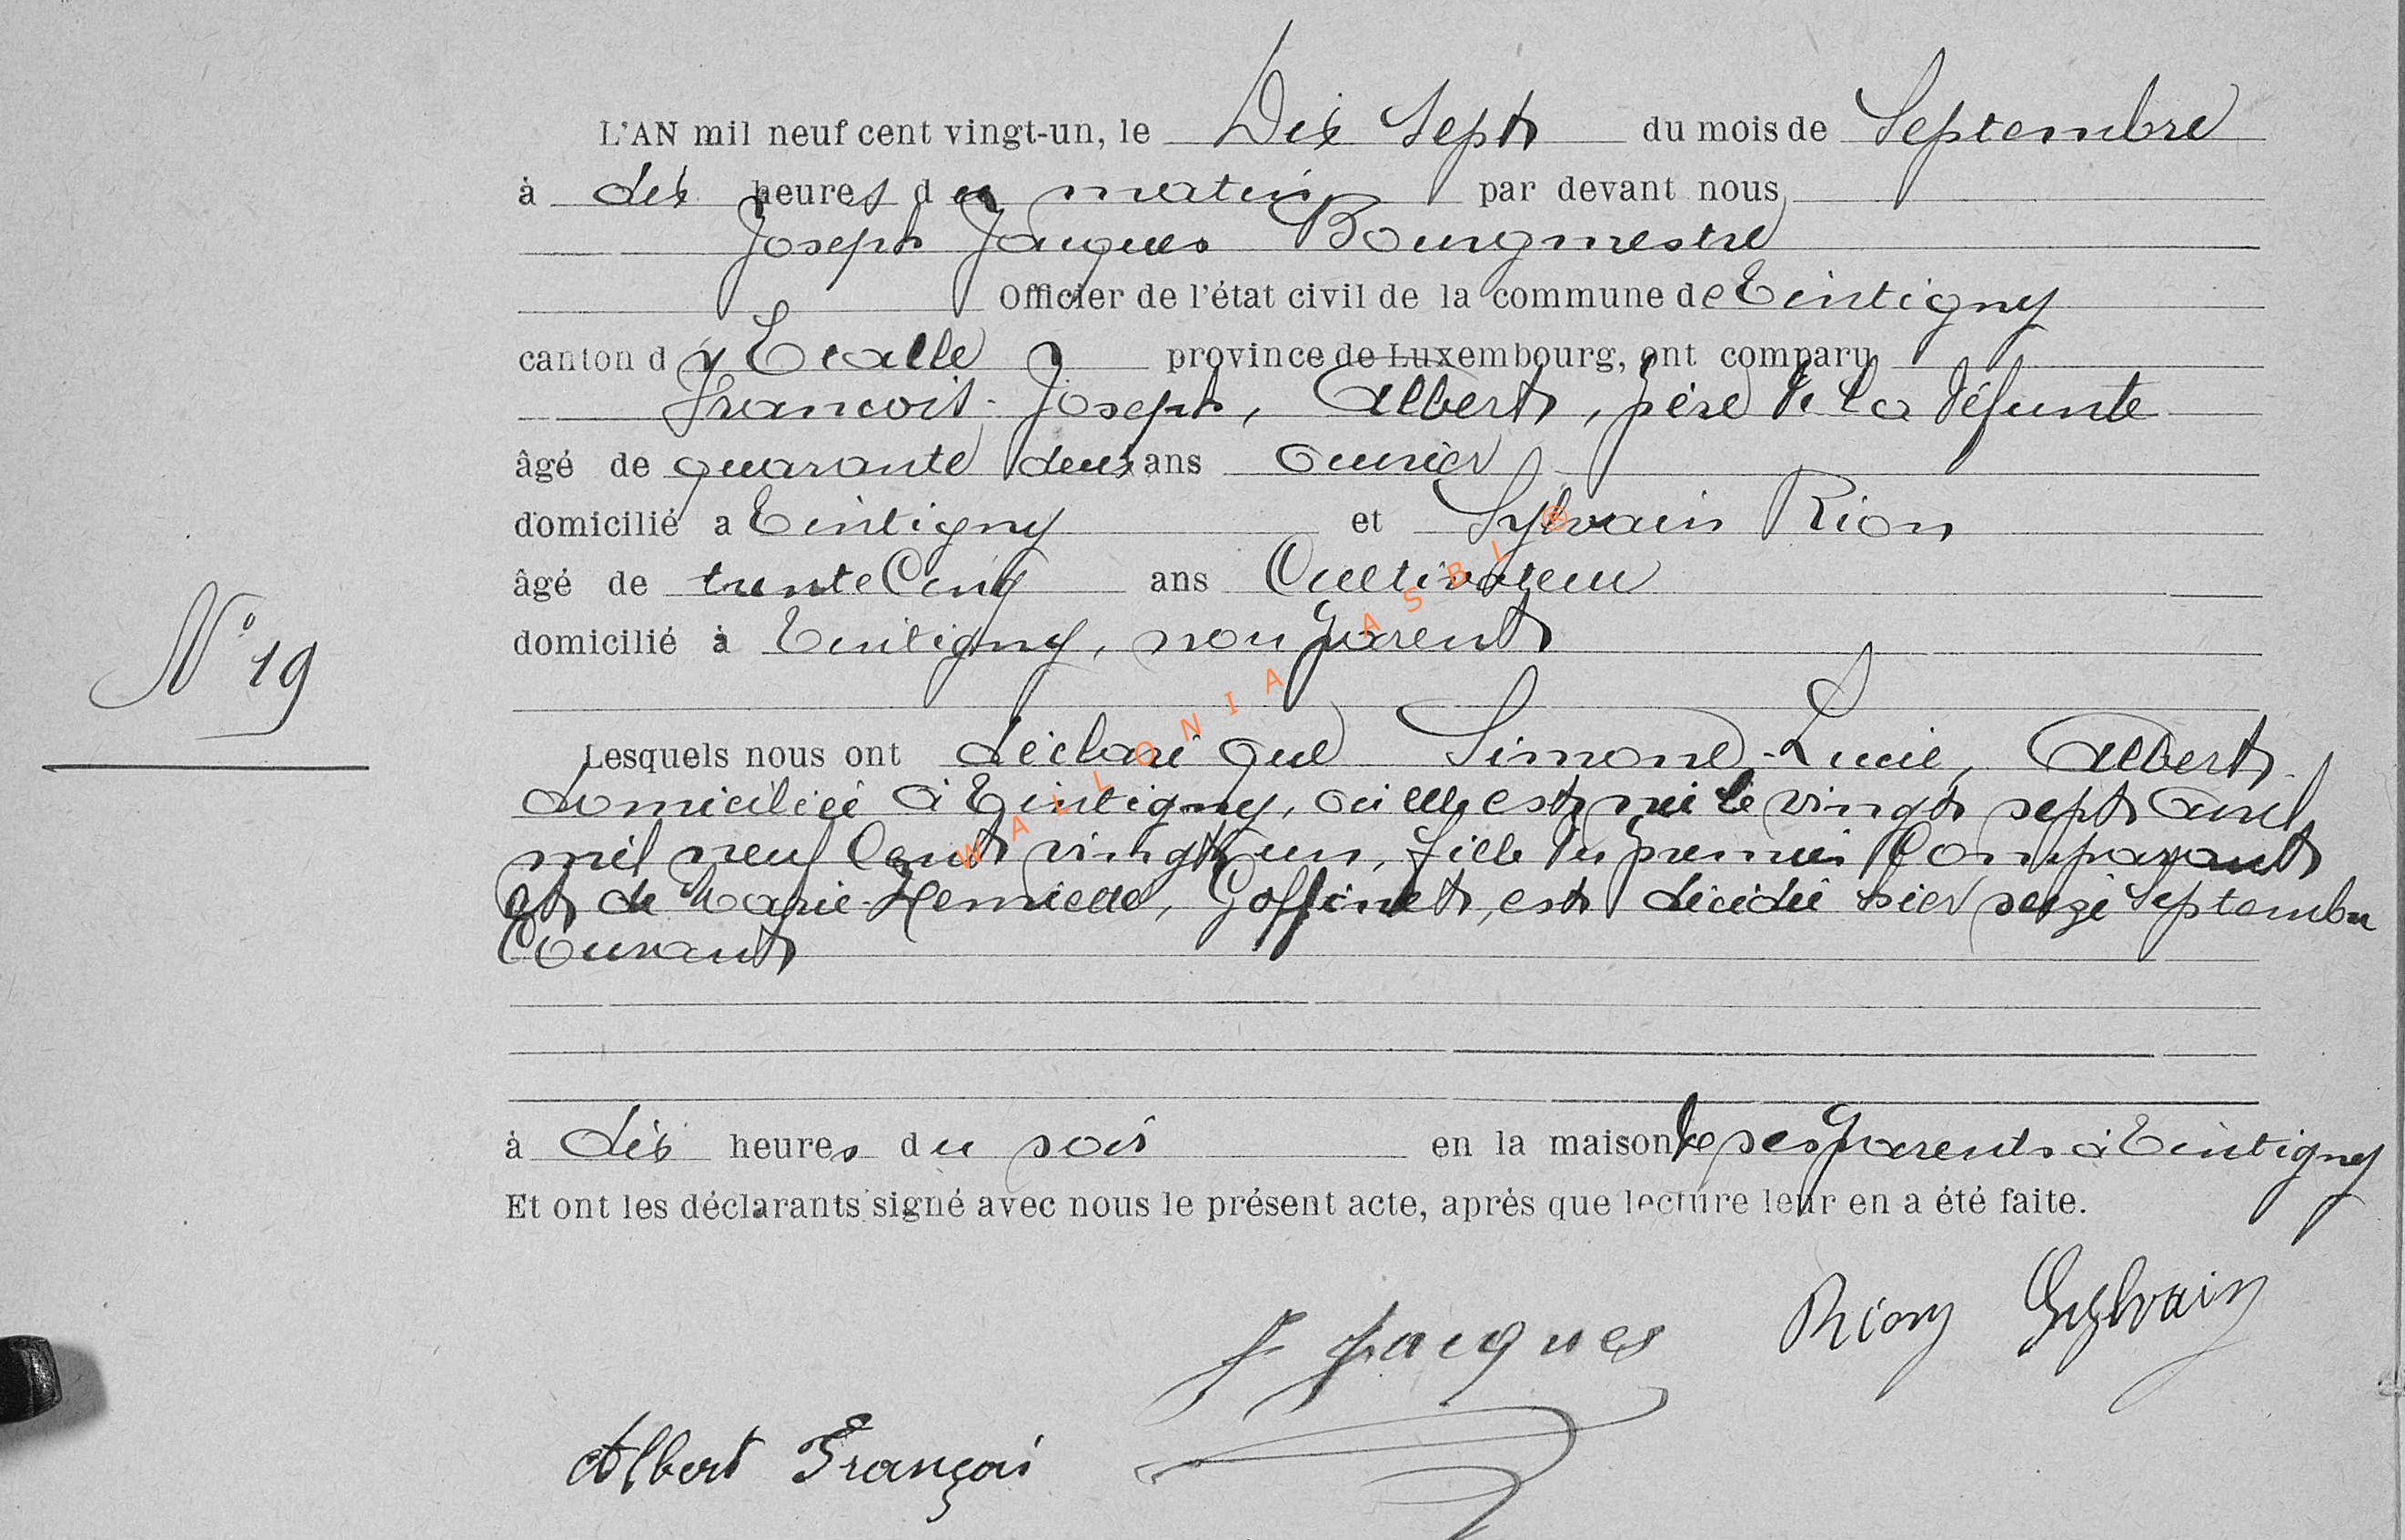 L'AN mil neuf cent vingt-un, le Dix Sept du mois de Septembre
à dix heures du matin par devant nous
Joseph Jacques Bourgmestre
Officier de l'état civil de la commune de Tintigny
canton d' Etalle province de Luxembourg, ont comparu
Francois-Joseph, Albert, père de la défunte
âgé de quarante deux ans ouvrier
domicilié a Tintigny et Sylvain Rion
âgé de trente Cinq ans Cultivateur
domicilié à Tintigny, non parent
N° 19
Lesquels nous ont déclaré que Simone-Lucie, Albert
domiciliée à Tintigny, où elle est née le vingt sept avril
mil neuf Cent vingt un, fille du premier Comparant
et de Marie-Henriette, Goffinet, est décédée hier seize Septembre
Courant
à dix heures du soir en la maison de ses parents à Tintigny
Et ont les déclarants signé avec nous le présent acte, après que lecture leur en a été faite.
J Jacques Rion Sylvain
Albert François
WALLONIA ASBL ®